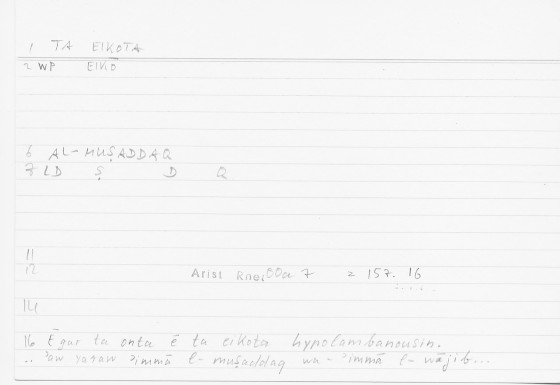 1 TA EIKOTA
2 WP EIKŌ
6 AL-MUṢADDAQ
7 LD Ṣ D Q
11
12 Arist Rhet 00a 7 = 157. 16
14
16 Ē gar ta onta ē ta eikota hypolambanousin.
.. ʾaw raʾaw ʾimmā l-muṣaddaq wa-ʾimmā l-wājib...